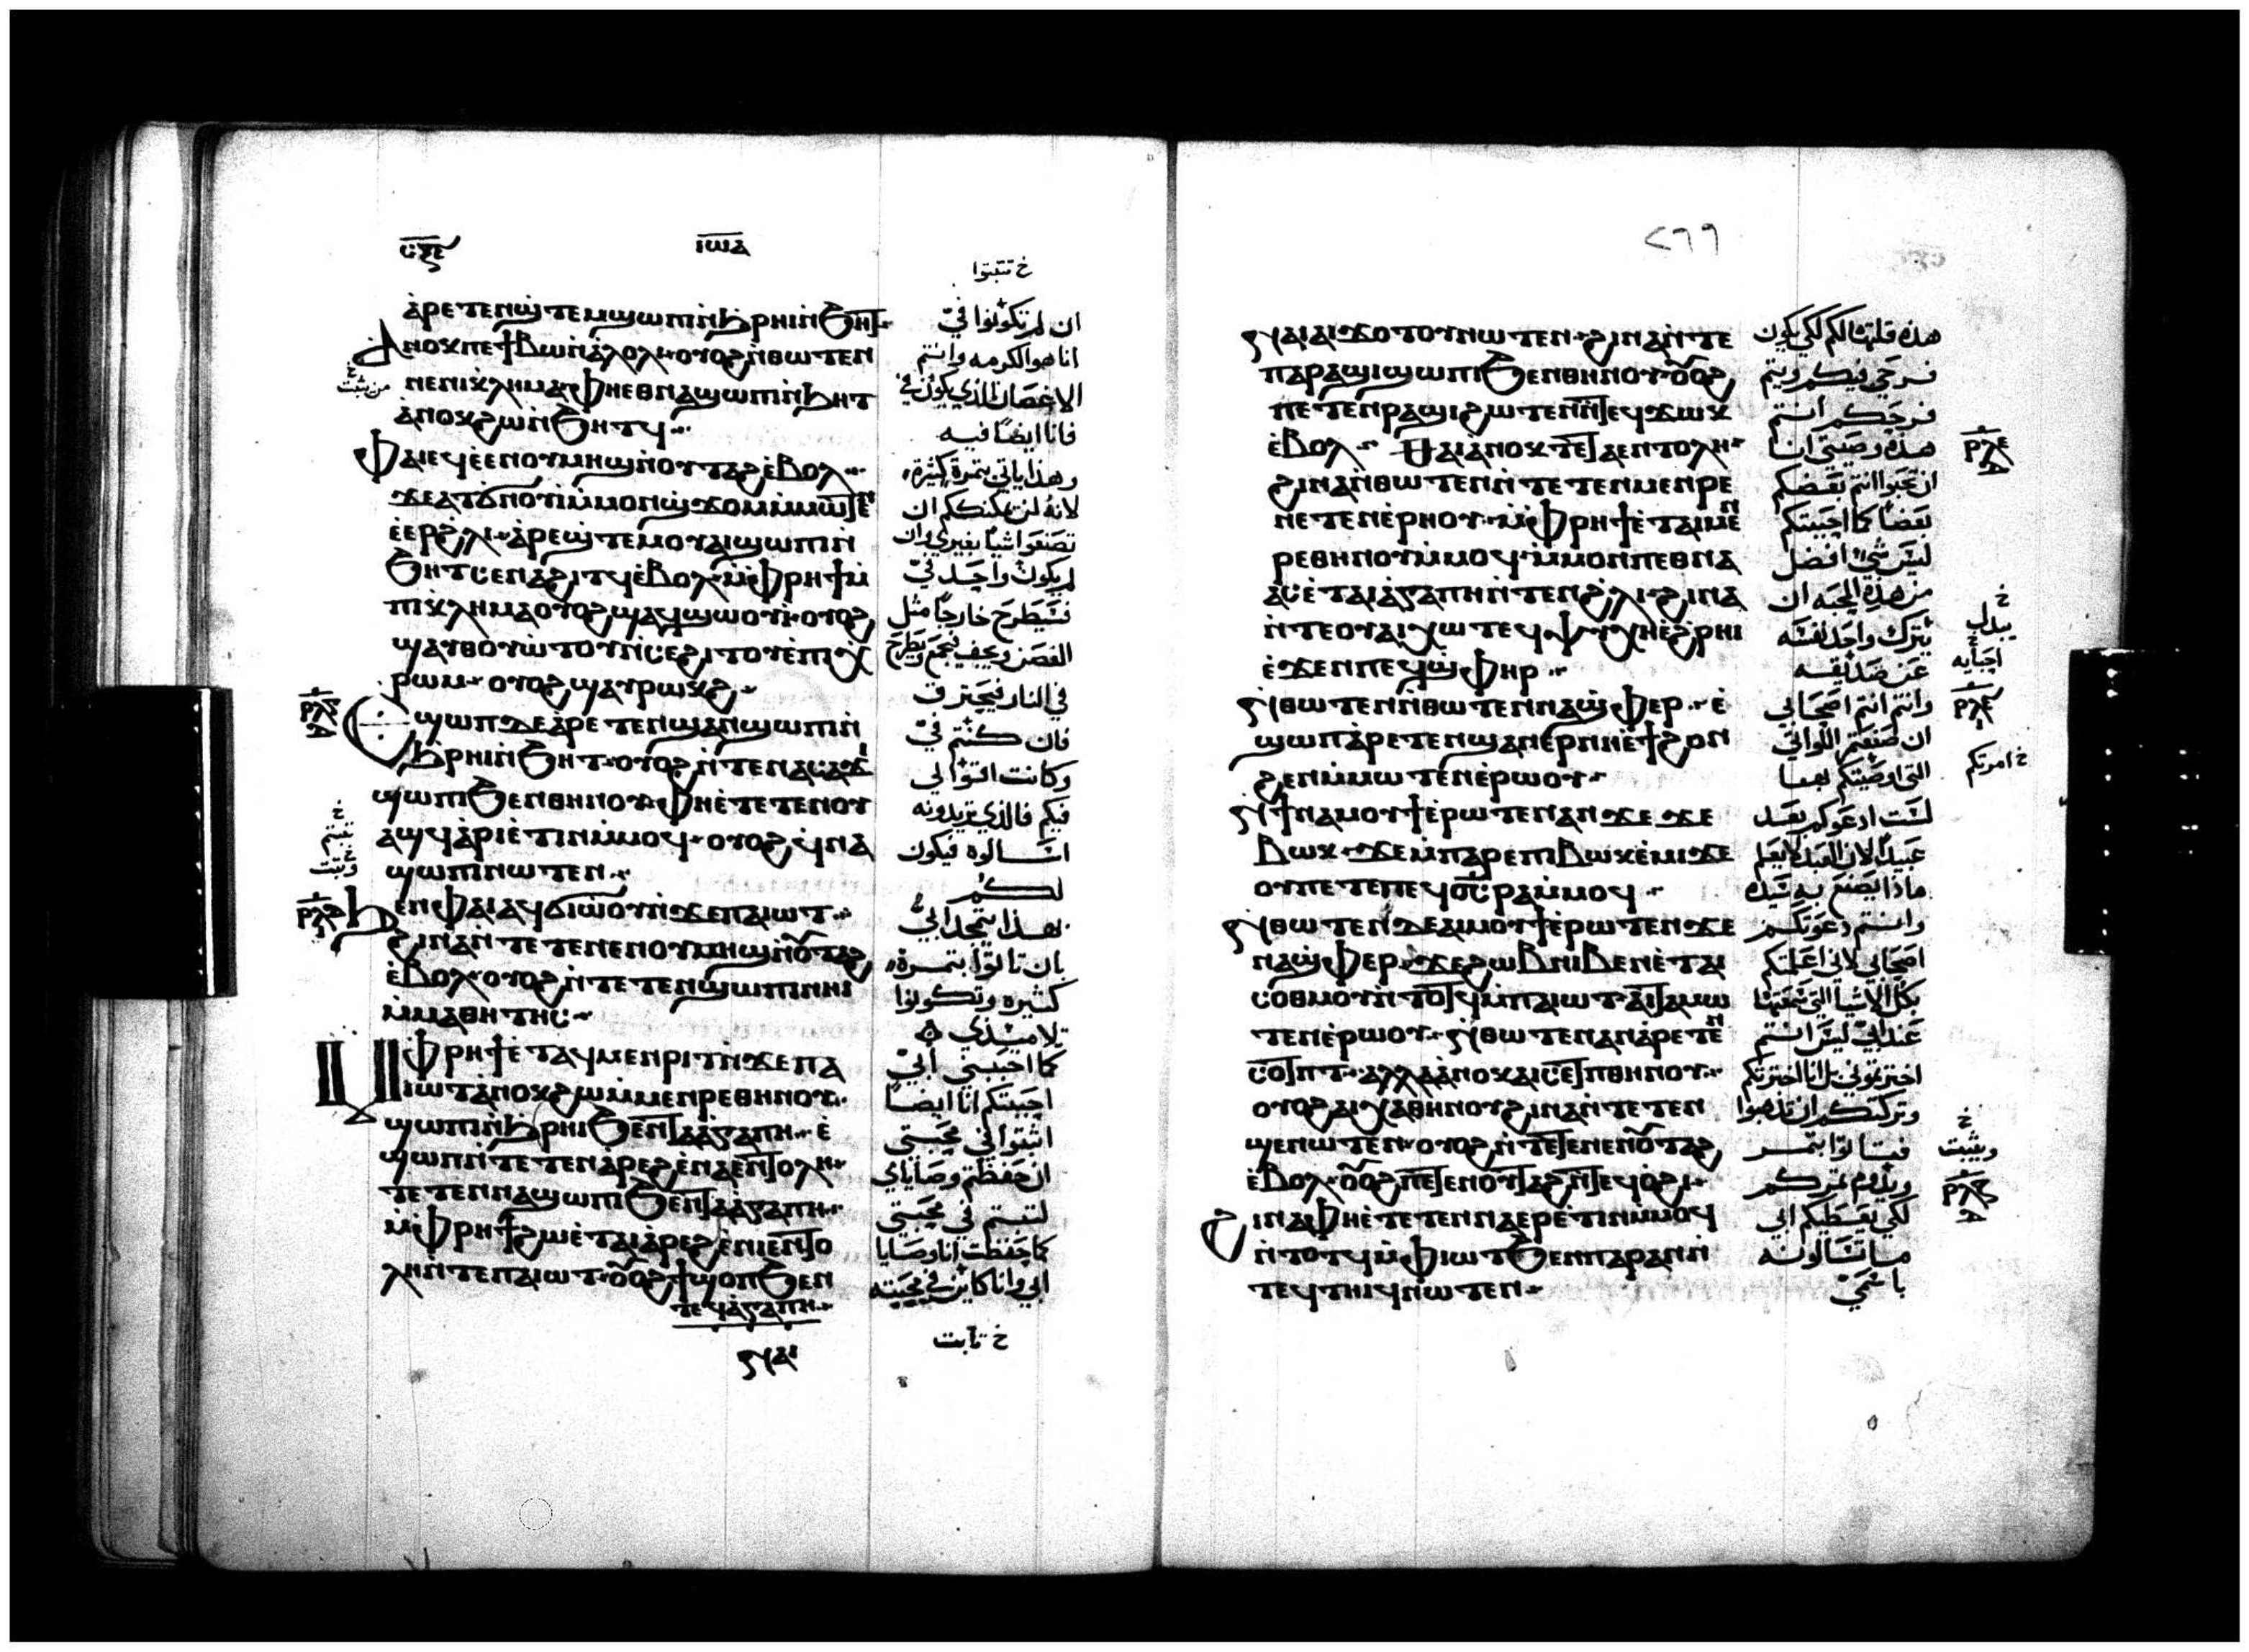 ⲥⲝⲋ
ⲓⲱⲁ
خ تثبتوا
ⲁ̀ⲣⲉⲧⲉⲛϣ̀ⲧⲉⲙϣⲱⲡⲓⲛ̀ϧⲣⲏⲓⲛ̀ϧⲏⲧ
ⲁⲛⲟⲕⲡⲉϯⲃⲱⲛ̀ⲁ̀ⲗⲟⲗⲓ ⲟⲩⲟϩ ⲛ̀ⲑⲱⲧⲉⲛ
ⲛⲉⲛⲓⲕ̀ⲗⲏⲙⲁ ⲫⲏⲉⲑⲛⲁϣⲱⲡⲓⲛ̀ϧⲏⲧ
ⲁ̀ⲛⲟⲕϩⲱⲛ̀ϧⲏⲧϥ
ⲫⲁⲓⲉϥⲉ̀ⲉⲛⲟⲩⲙⲏϣⲛ̀ⲟⲩⲧⲁϩ ⲉ̀ⲃⲟⲗ
ϫⲉⲁⲧϭⲛⲟⲩⲓ̀ⲙ̀ⲙⲟⲛϣ̀ϫⲟⲙⲙ̀ⲙⲱⲧⲉⲛ
ⲉ̀ⲉⲣϩ̀ⲗⲓ ⲁ̀ⲣⲉϣ̀ⲧⲉⲙⲟⲩⲁⲓϣⲱⲡⲓⲛ̀
ϧⲏⲧ ⲥⲉⲛⲁϩⲓⲧϥ ⲉ̀ⲃⲟⲗ ⲙ̀ⲫⲣⲏϯⲙ̀
ⲡⲓⲕ̀ⲗⲏⲙⲁ ⲟⲩⲟϩ ϣⲁϥϣⲱⲟⲩⲓ̀ ⲟⲩⲟϩ
ϣⲁⲩⲑⲟⲩⲱ̀ⲧⲟⲩⲛ̀ⲥⲉϩⲓⲧⲟⲩⲉ̀ⲡⲓⲭ̀
ⲣⲱⲙ ⲟⲩⲟϩ ϣⲁⲩⲣⲱⲕϩ
ⲉϣⲱⲡ ⲇⲉ ⲁ̀ⲣⲉⲧⲉⲛϣⲁⲛϣⲱⲡⲓⲛ̀
ϧⲣⲏⲓⲛ̀ϧⲏⲧ ⲟⲩⲟϩ ⲛ̀ⲧⲉⲛⲁⲥⲁϫⲓ
ϣⲱⲡⲓϧⲉⲛⲑⲏⲛⲟⲩ ⲫⲏⲉ̀ⲧⲉⲧⲉⲛⲟⲩ
ⲁϣϥ ⲁ̀ⲣⲓⲉ̀ⲧⲓⲛⲙ̀ⲙⲟϥ ⲟⲩⲟϩ ϥ̀ⲛⲁ
ϣⲱⲡⲓⲛⲱⲧⲉⲛ
ϧⲉⲛⲫⲁⲓⲁϥϭⲓⲱ̀ⲟⲩⲛ̀ϫⲉⲡⲁⲓⲱⲧ
ϩⲓⲛⲁ ⲛ̀ⲧⲉⲧⲉⲛⲉⲛⲟⲩⲙⲏϣⲛ̀ⲟⲩⲧⲁϩ
ⲉ̀ⲃⲟⲗ ⲟⲩⲟϩ ⲛ̀ⲧⲉⲧⲉⲛϣⲱⲡⲓⲛⲏⲓ
ⲙ̀ⲙⲁⲑⲏⲧⲏⲥ
ⲙⲫⲣⲏϯⲉ̀ⲧⲁϥⲙⲉⲛⲣⲓⲧⲛ̀ϫⲉⲡⲁ
ⲓⲱⲧ ⲁ̀ⲛⲟⲕϩⲱⲁⲓⲙⲉⲛⲣⲉⲑⲏⲛⲟⲩ
ϣⲱⲡⲓⲛ̀ϧⲣⲏⲓϧⲉⲛⲧⲁⲁ̀ⲅⲁⲡⲏ ⲉ̀
ϣⲱⲡⲛ̀ⲧⲉⲧⲉⲛⲁ̀ⲣⲉϩ ⲉ̀ⲛⲁⲉⲛⲧⲟⲗⲏ
ⲧⲉⲧⲉⲛⲛⲁϣⲱⲡⲓϧⲉⲛⲧⲁⲁ̀ⲅⲁⲡⲏ
ⲙ̀ⲫⲣⲏϯϩⲱⲉ̀ⲧⲁⲓⲁ̀ⲣⲉϩ ⲉ̀ⲛⲓⲉⲛⲧⲟ
ⲗⲏⲛ̀ⲧⲉⲡⲁⲓⲱⲧ ⲟⲩⲟϩ ϯϣⲟⲡϧⲉⲛ
ⲧⲉϥⲁ̀ⲅⲁⲡⲏ
ⲛⲁⲓ
ان لم تكونوا فيّ
انا هو الكرمه وانتم
الاغصان الذي يكون فيّ
فانا ايضا فيه
وهذا ياتي بثمرة كثيرة
لانه لن يمكنكم ان
تصنعوا شيا بغيري وان
لم يكون واحد فيّ
فسيطرح خارجا مثل
الغصن ويجف فيجمع ويطرح
في النار فيحترق
فان كنتم فيّ
وكانت اقوالي
فيكم فالذي تريدونه
اسالوه فيكون
لكم
بهذا يتمجد ابي
بان تاتوا بثمرة
كثيره وتكونوا
تلاميذي
كما احببني ابي
احببتكم انا ايضا
اثبتوا في محبتي
ان حفظتم وصاياي
لثبتم في محبتي
كما حفظت انا وصايا
ابي وانا كاين في محبته
خ ثابت
خ
من يثبت
ⲣⲗⲅ
خ
ثبتم
خ
وثبت
٢٦٦
ⲛⲁⲓⲁⲓϫⲟⲧⲟⲩⲛⲱⲧⲉⲛ ϩⲓⲛⲁ ⲛ̀ⲧⲉ
ⲡⲁⲣⲁϣⲓϣⲱⲡⲓϧⲉⲛⲑⲏⲛⲟⲩ ⲟⲩⲟϩ
ⲡⲉⲧⲉⲛⲣⲁϣⲓϩⲱⲧⲉⲛ ⲛ̀ⲧⲉϥϫⲱⲕ
ⲉ̀ⲃⲟⲗ ⲑⲁⲓ ⲁⲛⲟⲕ ⲧⲉ ⲧⲁⲉⲛⲧⲟⲗⲏ
ϩⲓⲛⲁ ⲛ̀ⲑⲱⲧⲉⲛ ⲛ̀ⲧⲉⲧⲉⲛⲙⲉⲛⲣⲉ
ⲛⲉⲧⲉⲛⲉ̀ⲣⲏⲟⲩ ⲙ̀ⲫⲣⲏϯⲉ̀ⲧⲁⲓⲙⲉⲛ
ⲣⲉⲑⲏⲛⲟⲩⲙ̀ⲙⲟϥ ⲙ̀ⲙⲟⲛⲡⲉⲑⲛⲁ
ⲁⲥⲉ̀ⲧⲁⲓⲁ̀ⲅⲁⲡⲏ ⲛ̀ⲧⲉⲛϩ̀ⲗⲓ ϩⲓⲛⲁ
ⲛ̀ⲧⲉⲟⲩⲁⲓⲭⲱⲧⲉϥⲯⲩⲭⲏⲉ̀ϩ̀ⲣⲏⲓ
ⲉ̀ϫⲉⲛⲡⲉϥϣ̀ⲫⲏⲣ
ⲛⲑⲱⲧⲉⲛ ⲛ̀ⲑⲱⲧⲉⲛ ⲛⲁϣ̀ⲫⲏⲣ ⲉ̀
ϣⲱⲡ ⲁ̀ⲣⲉⲧⲉⲛϣⲁⲛⲉ̀ⲣⲛⲏⲉ̀ϯϩⲟⲛ
ϩⲉⲛⲙ̀ⲙⲱⲧⲉⲛ ⲉ̀ⲣⲱⲟⲩ
ⲛϯⲛⲁⲙⲟⲩϯⲉ̀ⲣⲱⲧⲉⲛ ⲁⲛ ϫⲉ ϫⲉ
ⲃⲱⲕ ϫⲉⲙ̀ⲡⲁⲣⲉⲡⲓⲃⲱⲕⲉ̀ⲙⲓϫⲉ
ⲟⲩⲡⲉⲧⲉⲡⲉϥⲟ̅ⲥ̅ⲣⲁⲙ̀ⲙⲟϥ
ⲛⲑⲱⲧⲉⲛ ⲇⲉ ⲁⲓⲙⲟⲩϯⲉ̀ⲣⲱⲧⲉⲛ ϫⲉ
ⲛⲁϣ̀ⲫⲏⲣ ϫⲉϩⲱⲃⲛⲓⲃⲉⲛⲉ̀ⲧⲁⲓ
ⲥⲟⲑⲙⲟⲩⲛ̀ⲧⲟⲧϥⲙ̀ⲡⲁⲓⲱⲧ ⲁⲓⲧⲁⲙⲱ
ⲧⲉⲛ ⲉ̀ⲣⲱⲟⲩ ⲛⲑⲱⲧⲉⲛ ⲁⲛ ⲁ̀ⲣⲉⲧⲉⲛ
ⲥⲟⲧⲡⲧ ⲁⲗⲗⲁ ⲁ̀ⲛⲟⲕ ⲁⲓⲥⲉⲧⲡⲑⲏⲛⲟⲩ
ⲟⲩⲟϩ ⲁⲓⲭⲁⲑⲏⲛⲟⲩ ϩⲓⲛⲁ ⲛ̀ⲧⲉⲧⲉⲛ
ϣⲉⲛⲱⲧⲉⲛ ⲟⲩⲟϩ ⲛ̀ⲧⲉⲧⲉⲛⲉⲛⲟⲩⲧⲁϩ
ⲉ̀ⲃⲟⲗ ⲟⲩⲟϩ ⲡⲉⲧⲉⲛⲟⲩⲧⲁϩ ⲛ̀ⲧⲉϥⲟ̀ϩⲓ
ϩⲓⲛⲁ ⲫⲏⲉ̀ⲧⲉⲧⲉⲛⲛⲁⲉⲣⲉ̀ⲧⲓⲛⲙ̀ⲙⲟϥ
ⲛ̀ⲧⲟⲧϥⲙ̀ⲫⲓⲱⲧ ϧⲉⲛⲡⲁⲣⲁⲛ ⲛ̀
ⲧⲉϥⲧⲏⲓϥⲛⲱⲧⲉⲛ
هذه قلتها لكم لكي يكون
فرحي فيكم ويتم
فرحكم انتم
هذه وصيتي انا
ان تحبوا انتم بعضكم
بعضا كما احببتكم
ليس شي افضل
من هذه المحبه ان
يترك واحد نفسه
عن صديقه
وانتم انتم اصحابي
ان صنعتم اللواتي
التي اوصيتكم بها
لست ادعوكم بعد
عبيد لان العبد لا يعلم
ماذا يصنع به سيده
وانتم دعوتكم
اصحابي لاني اعلمتكم
بكل الاشيا التي سمعتها
عند ابي ليس انتم
اخترتموني بل انا اخترتكم
وتركتكم ان تذهبوا
فتاتوا بثمر
ويدوم ثمركم
لكي يعطيكم ابي
ما تسالونه
باسمي
ⲣⲗⲉ
خ
يبدل
احبايه
خ امرتكم
خ
ويثبت